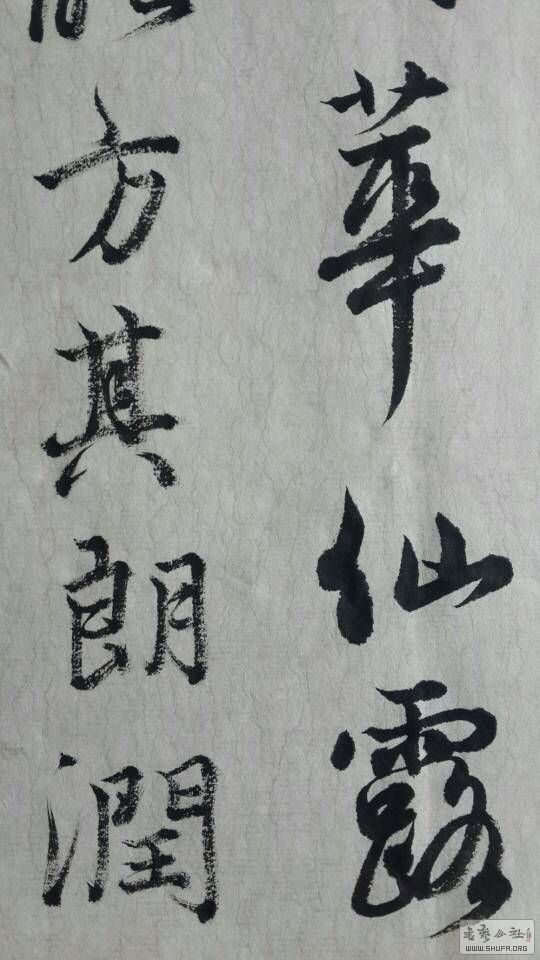 華仙露
能方其朗潤
書藝公社
WWW.SHUFA.ORG